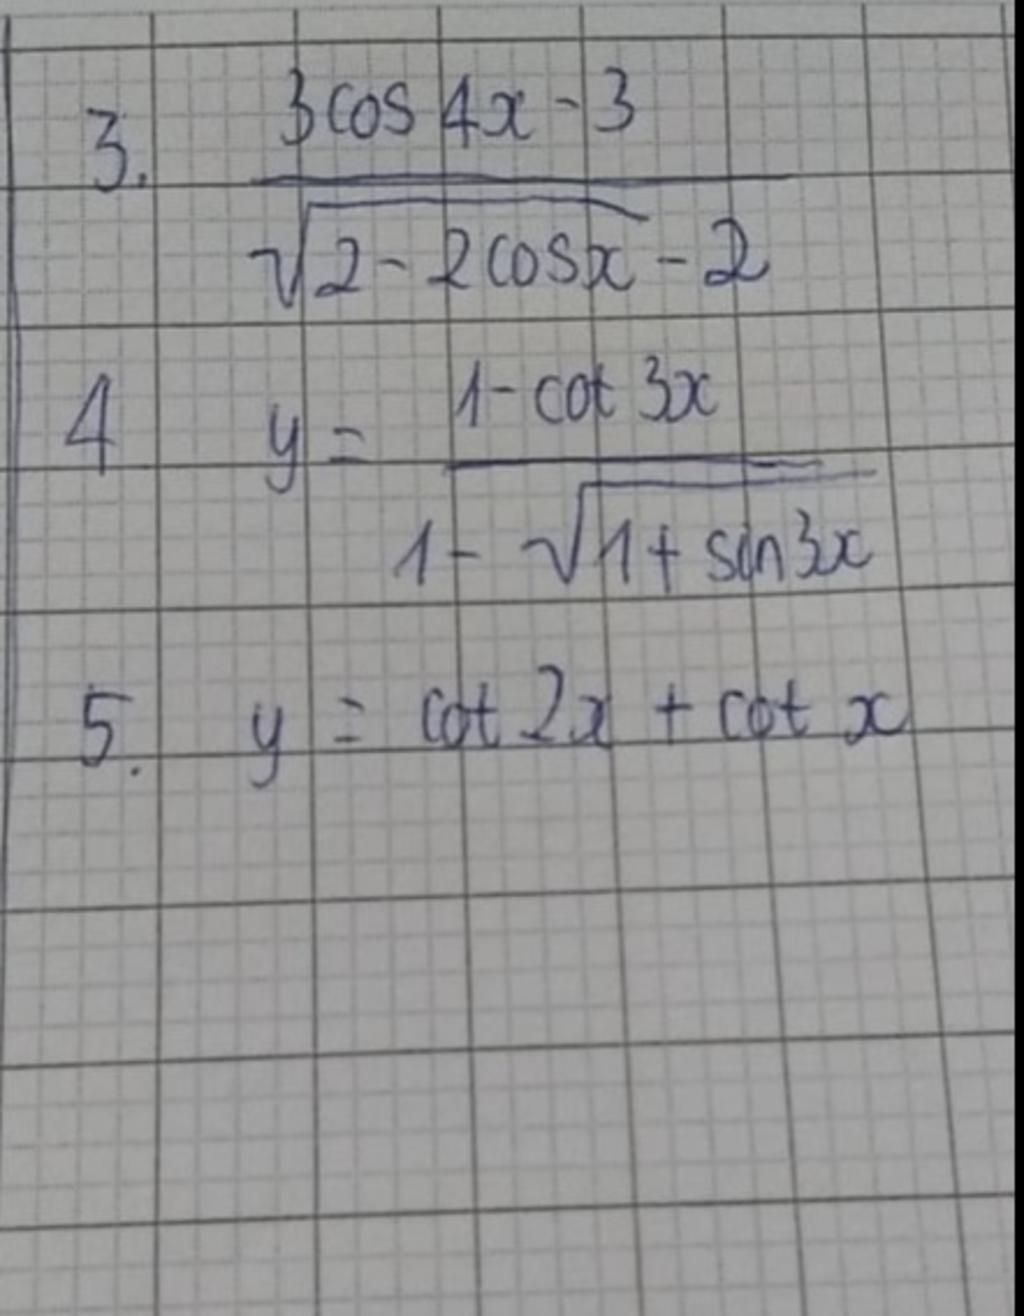 3. (3cos 4x - 3)/(√(2 - 2cosx) - 2)
4 y = (1 - cot 3x)/(1 - √(1 + sin3x))
5. y = cot 2x + cot x